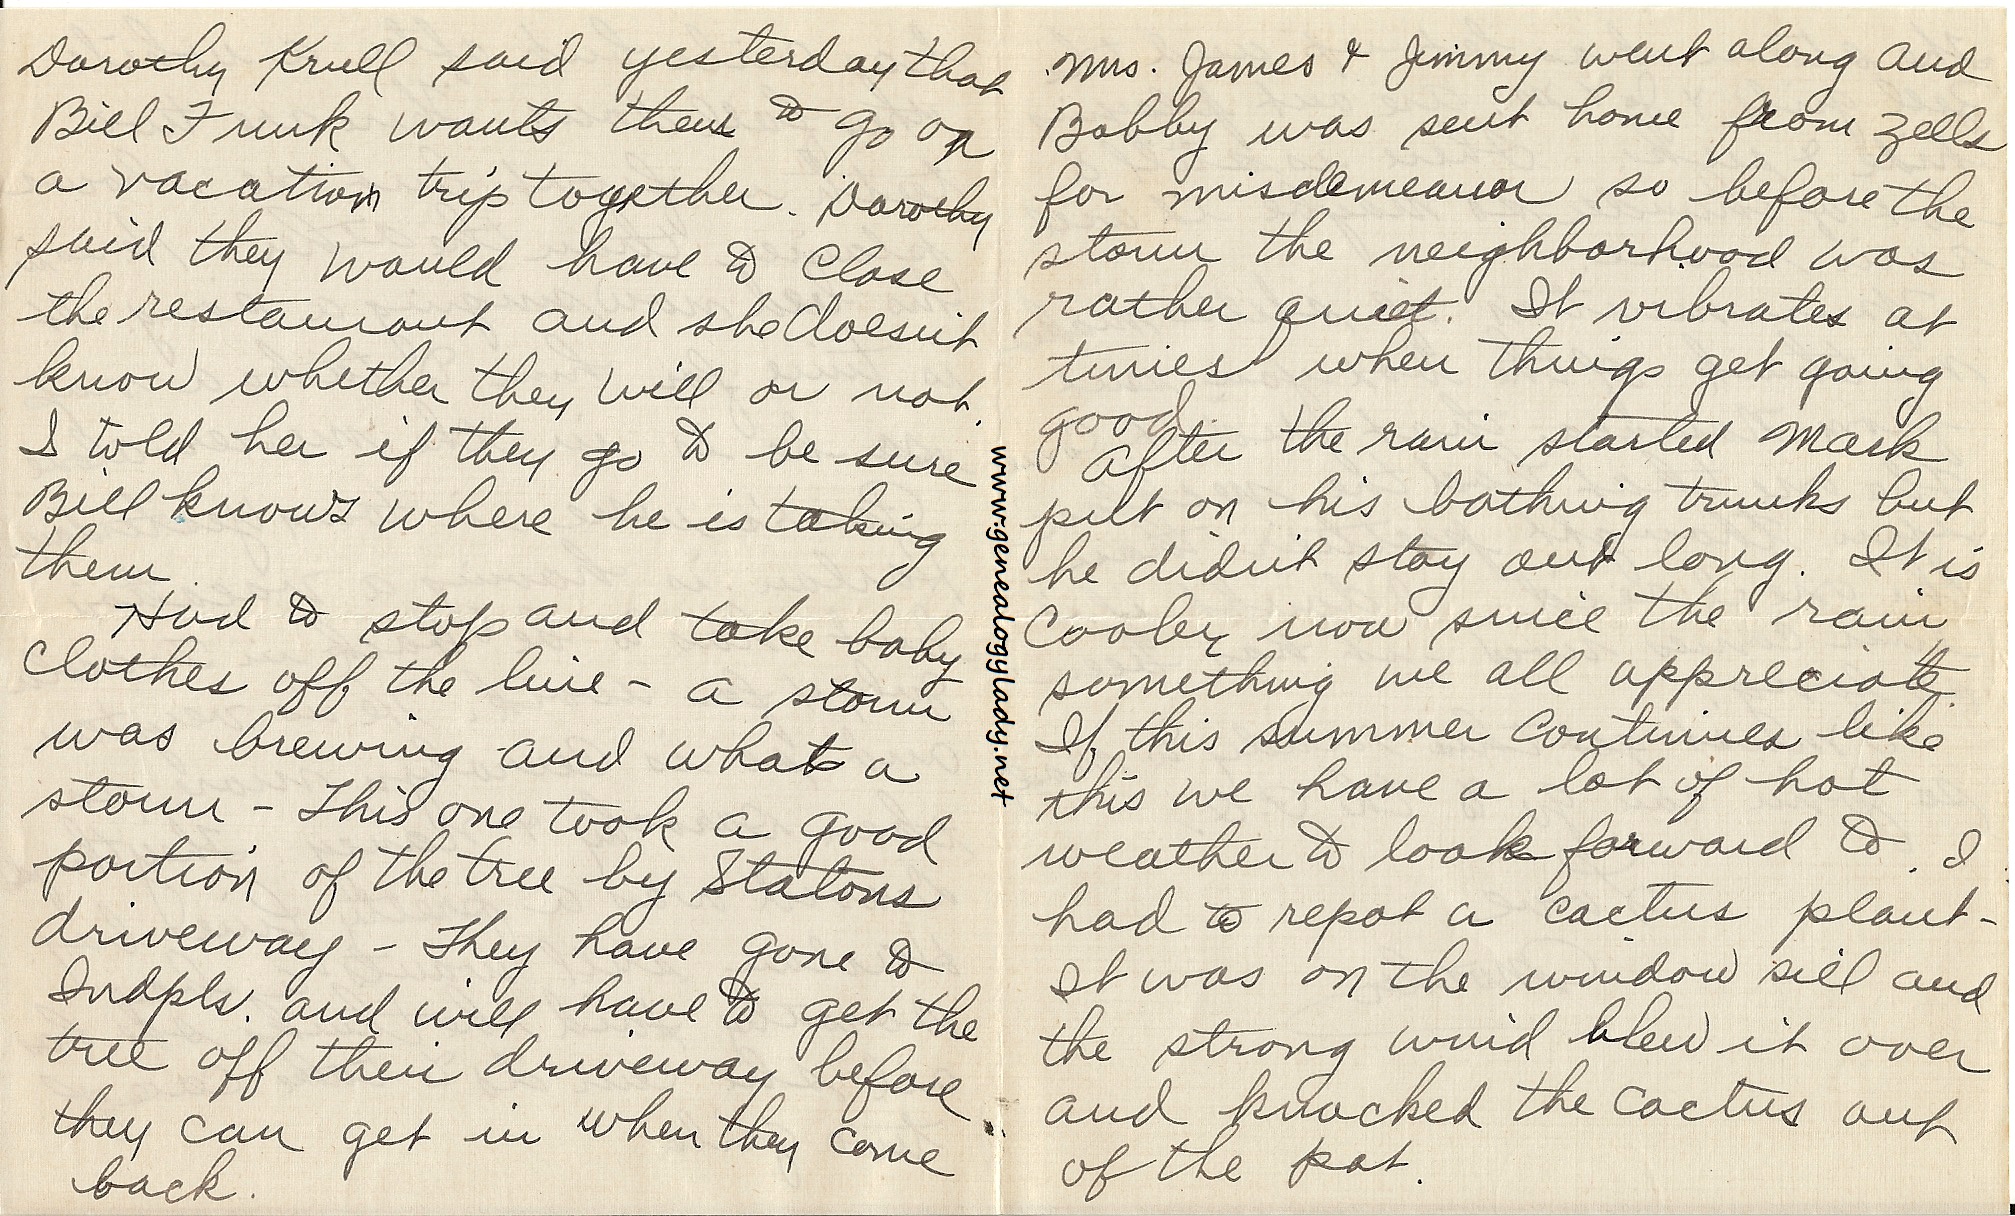 Dorothy Krull said yesterday that
Bill Funk wants them to go on
a vacation trip together. Dorothy
said they would have to close
the restaurant and she doesn't
know whether they will or not.
I told her if they go to be sure
Bill knows where he is taking
them.
Had to stop and take baby
clothes off the line - a storm
was brewing and what a
storm - This one took a good
portion of the tree by Statons
driveway - They have gone to
Indpls. and will have to get the
tree off their driveway before
they can get in when they come
back.
Mrs. James & Jimmy went along and
Bobby was sent home from Zells
for misdemeanor so before the
storm the neighborhood was
rather quiet. It vibrates at
times when things get going
good.
After the rain started Mark
put on his bathing trunks but
he didn't stay out long. It is
cooler now since the rain
something we all appreciate.
If this summer continues like
this we have a lot of hot
weather to look forward to. I
had to repot a cactus plant -
It was on the window sill and
the strong wind blew it over
and knocked the cactus out
of the pot.
www.genealogylady.net